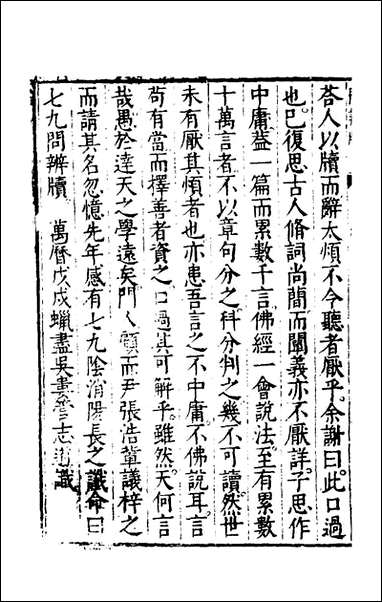 荅人以牘而辭太煩不令聽者厭乎余謝曰此口過
也已復思古人脩詞尚簡而闡義亦不厭詳子思作
中庸葢一篇而累數千言佛經一會說法至有累數
十萬言者不以章句分之科分判之幾不可讀然世
未有厭其煩者也亦患吾言之不中庸不佛說耳言
苟有當而擇善者資之口過其可解乎雖然天何言
哉愚於達天之學遠矣門人頋而尹張浩軰議梓之
而請其名忽憶先年感有七九陰消陽長之讖命曰
七九問辨牘 萬曆戊戌蜡盡吳婁管志道識